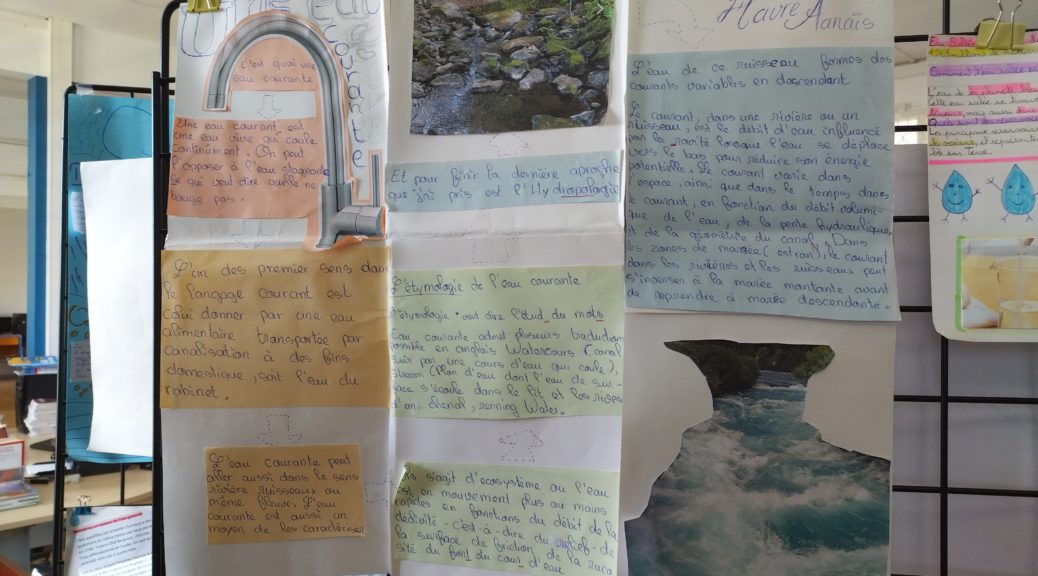 Une eau
courante
C'est quoi une
eau courante
Une eau courant est
une eau vive qui coule
continument. On peut
l'opposer à l'eau stagnante
se qui veut dire quelle ne
bouge pas.
L'un des premier sens dans
le langage courant est
celui donner par une eau
alimentaire transportée par
canalisation à des fins
domestique, soit l'eau du
robinet.
L'eau courante peut
aller aussi dans le sens
rivière ruisseaux ou
même fleuves L'eau
courante est aussi un
moyen de les caractériser
Et pour finir la dernière aproche
que j'ai pris est l'Hydnopologie
L'étymologie de l'eau courante
L'étymologie veut dire l'étud du mots
Eau courante admet plusieurs traduction
possible en anglais Watercours (canal
suir par une cours d'eau qui coule),
stream (Plan d'eau dont l'eau de sur-
face s'écoule dans le lit et les rives
d'un chenal, running Water.
s'agit d'ecosystème ou l'eau
est en mouvement plus ou mains
rapides en fonctions du débit de la
déclivité - c'est-à dire du relief - de
la surface de friction, de la ruco
sité du font du cour d'eau
Havre Aanaïs
L'eau de ce ruisseau formes des
courants variables en descendant
Le courant, dans une rivière ou un
ruisseau, est le débit d'eau influencé
par la ravité lorsque l'eau se déplace
vers le bas pour réduire son énergie
potentielle. Le courant varie dans
l'espace, ainsi que dans le temps dans
le courant, en fonction du débit volumi-
que de l'eau, de la pente hydraulique
et de la géométrie du canal. Dans
les zones de marée (estran), le courant
dans les rivières et les ruisseaux peut
s'inverser à la marée mantante avant
de reprendre à marée descendante.